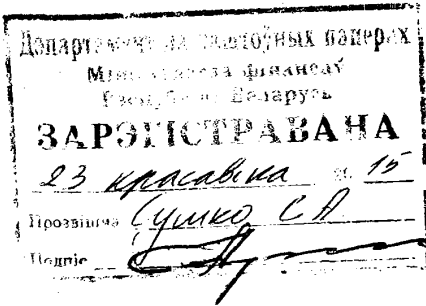 Дэпартамент па каштоўных паперах
Міністэрства фінансаў
Рэспублікі Беларусь
ЗАРЭГІСТРАВАНА
23 красавіка 20 15
Прозвішча Сушко С А
Подпіс